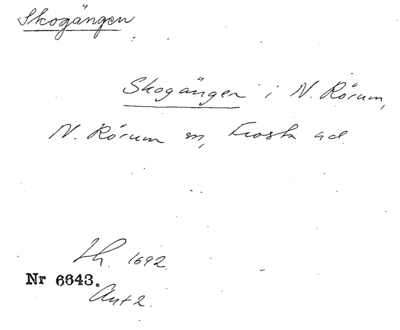 Skogängen
Skogängen i N. Rörum,
N. Rörum sn, Frosta hd.
Lh. 1692
Nr 6643.
Ant 2.